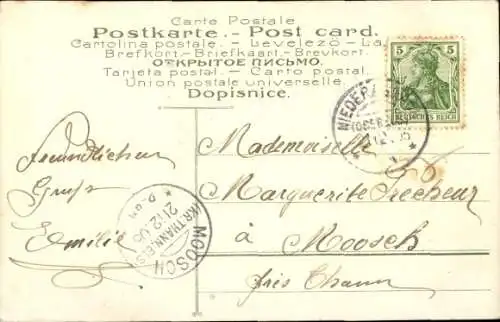 Carte Postale
Postkarte. - Post card.
Cartolina postale. - Levelező - La
Brefkort.- Briefkaart.- Brevkort.
ОТКРЫТОЕ ПИСЬМО.
Tarjeta postal. - Carto postal.
Union postale universelle.
Dopisnice.
5 5
DEUTSCHES REICH
NIEDER
Freundlichen
Gruss
Emilie
Mademoiselle
Marguerite Frecheur
à Moosch
près Thann
MOOSCH
21.12.05
(KR. THANN, ELS)